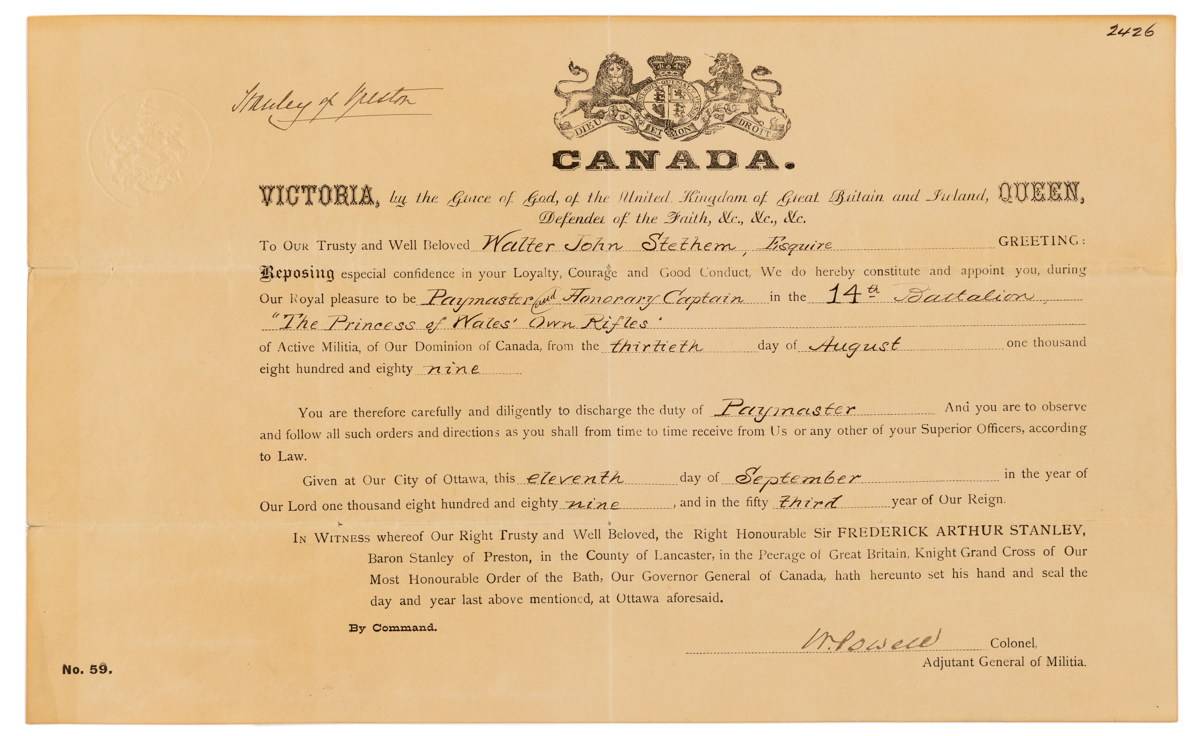 2426
Stanley of Preston
DIEU ET MON DROIT
CANADA.
VICTORIA, by the Grace of God, of the United Kingdom of Great Britain and Ireland, QUEEN,
Defender of the Faith, &c., &c., &c.
To Our Trusty and Well Beloved Walter John Stethem, Esquire GREETING:
Reposing especial confidence in your Loyalty, Courage and Good Conduct, We do hereby constitute and appoint you, during
Our Royal pleasure to be Paymaster and Honorary Captain in the 14th Battalion,
"The Princess of Wales' Own Rifles"
of Active Militia, of Our Dominion of Canada, from the thirtieth day of August one thousand
eight hundred and eighty nine
You are therefore carefully and diligently to discharge the duty of Paymaster And you are to observe
and follow all such orders and directions as you shall from time to time receive from Us or any other of your Superior Officers, according
to Law.
Given at Our City of Ottawa, this eleventh day of September in the year of
Our Lord one thousand eight hundred and eighty nine, and in the fifty third year of Our Reign.
In Witness whereof Our Right Trusty and Well Beloved, the Right Honourable Sir FREDERICK ARTHUR STANLEY,
Baron Stanley of Preston, in the County of Lancaster, in the Peerage of Great Britain, Knight Grand Cross of Our
Most Honourable Order of the Bath, Our Governor General of Canada, hath hereunto set his hand and seal the
day and year last above mentioned, at Ottawa aforesaid.
By Command.
W. Powell Colonel,
Adjutant General of Militia.
No. 59.